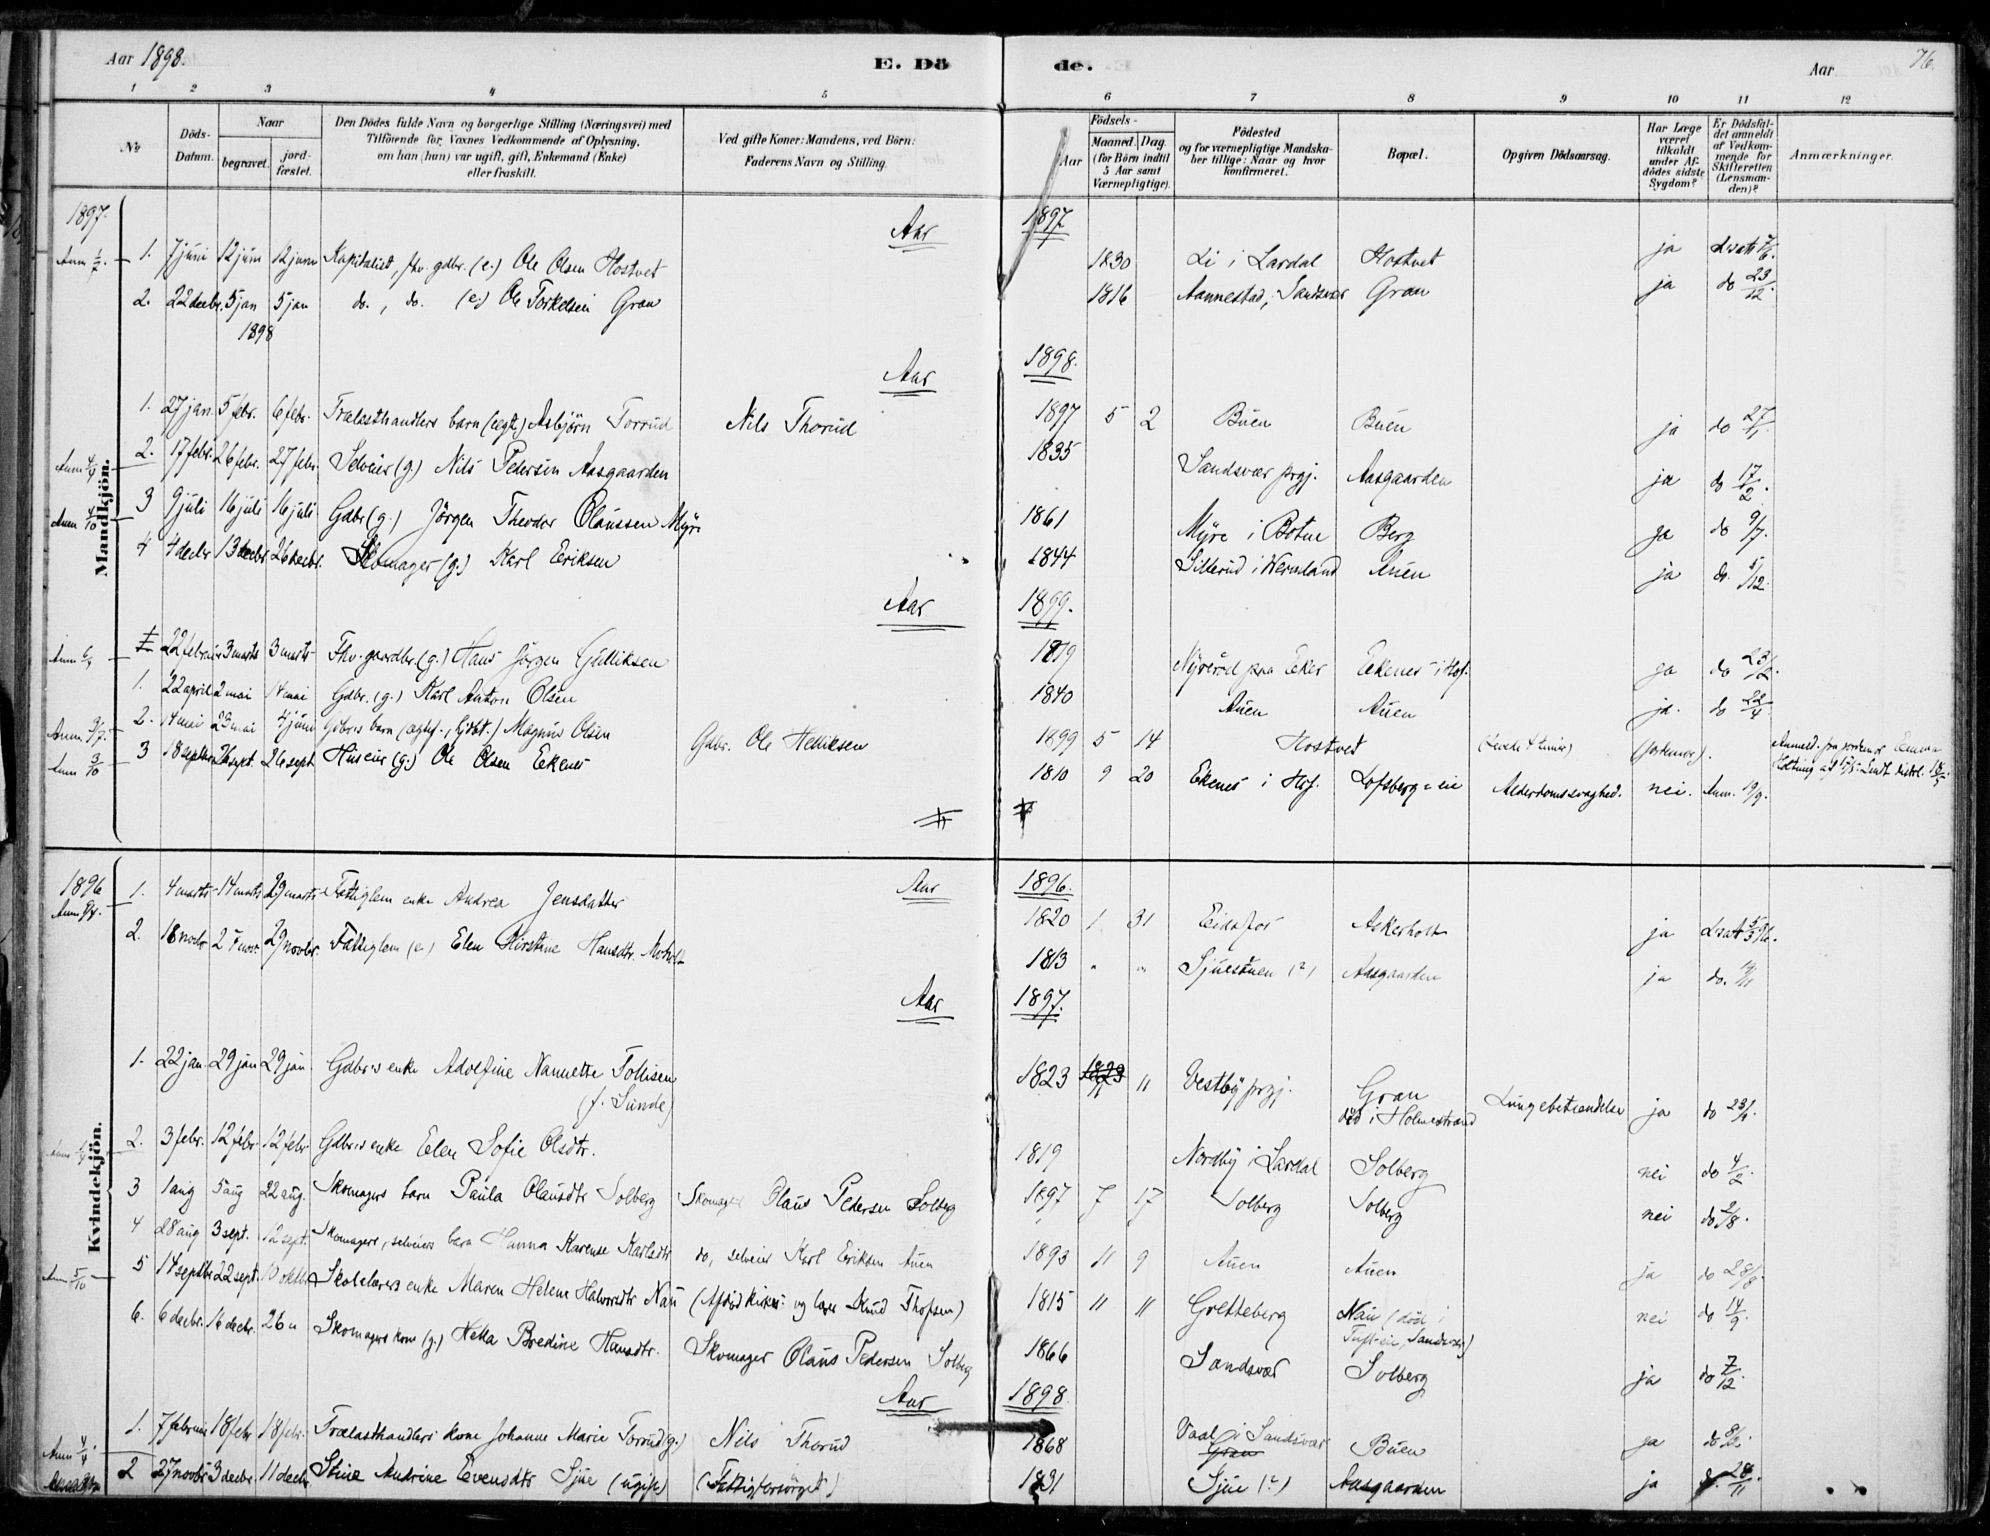 Aar 1898. E. Dö de. Aar 76.
1 2 3 4 5 6 7 8 9 10 11 12
No
Döds-Datum.
Naar
begravet. jord-fæstet.
Den Dödes fulde Navn og borgerlige Stilling (Næringsvei) med
Tilföiende for Voxnes Vedkommende af Oplysning,
om han (hun) var ugift, gift, Enkemand (Enke)
eller fraskilt.
Ved gifte Koner: Mandens, ved Börn:
Faderens Navn og Stilling.
Födsels-
Aar Maaned. Dag.
(for Börn indtil
5 Aar samt
Værnepligtige).
Födested
og for værnepligtige Mandska-
ber tillige: Naar og hvor
konfirmeret.
Bopæl.
Opgiven Dödsaarsag.
Har Læge
været
tilkaldt
under Af-
dödes sidste
Sygdom?
Er Dödsfal-
det anmeldt
af Vedkom-
mende for
Skifteretten
(Lensman-
den)?
Anmærkninger.
Mandkjön.
1897. Aar 1897
1. 7 juni 12 juni 12 juni Kapitalist, fhv. gdbr. (e.) Ole Olsen Hostvet 1830 Li i Lardal Hostvet ja
2. 22 decbr. 5 jan 5 jan do., do. (e.) Ole Torkelsen Gran 1816 Aannestad, Sandsvær Gran ja do 23/12.
1898
Aar 1898.
1. 27 jan 5 febr. 6 febr. Trælasthandlers barn (ægte) Asbjörn Torrud Nils Thorud 1897 5 2 Buen Buen ja do 27/1
2. 17 febr. 26 febr. 27 febr. Selveier (g.) Nils Pedersen Aasgaarden 1835 Sandsvær prgj. Aasgaarden ja do 17/2.
3 9 juli 16 juli 16 juli Gdbr (g.) Jörgen Theodor Olaussen Myre 1861 Myre i Botne Berg ja do 9/7.
4 4 decbr 13 decbr 26 decbr. Skomager (g.) Karl Eriksen 1844 Sillerud i Wermland Auen ja do. 5/12.
Aar 1899.
22 februar 3 marts 3 marts Fhv. gaardbr. (g.) Hans Jörgen Gulliksen 1819 Eker Eekenes i Hof. ja do 23/2.
1. 22 april 2 mai 14 mai Gdbr. (g.) Karl Anton Olsen 1840 Auen Auen ja. do 22/4
2. 14 mai 23 mai 4 juni Gdbrs barn Magnus Olsen Gdbr. Ole Helliksen 1899 5 14 Hostvet (Levede 4 timer)
3 18 septbr 26 sept. 26 sept Huseier (g.) Ole Olsen Eekenes 1810 9 20 Ekenes i Hof. Lofsberg eie Alderdomssvaghed. nei. Anm. 19/9.
Kvindekjön.
1896 Aar 1896.
1. 4 marts 14 marts 29 marts Fattiglem enke Andrea Jensdatter 1820 1. 31 Eidsfos Askerholt ja
2. 18 novbr 27 nov. 29 novbr. Fattiglem (e) Elen Kirstine Hansdtr. Moholt 1813 " " Sjuestuen (?) Aasgaarden ja do. 19/11
Aar 1897.
1. 22 jan. 29 jan 29 jan. Gdbr's enke Adolfine Nannette Tollisen 1823 Vestby prgj. Gran Lungebetændelse ja do 23/1
(f. Sunde) död i Holmestrand
2. 3 febr. 12 febr. 12 febr Gdbr.s enke Elen Sofie Olsdtr. 1819 Nordby i Lardal Solberg nei do 4/2.
3 1 aug 5 aug 22 aug. Skomagers barn Paula Olausdtr Solberg Skomager Olaus Pedersen Solberg 1897 7 17 Solberg Solberg nei do 2/8.
4 28 aug 3 sept. 12 sept. Skomagers, selveiers barn Hanna Karense Karlsdtr do, selveier Karl Eriksen Auen 1893 11 9 Auen Auen ja do 28/8.
5 14 septbr 22 sept. 10 oktbr Skolelærers enke Maren Helene Halvorsdtr Nau (Afdöd kirkes. og lærer Knud Thofsen) 1815 " " Gretteberg Nau (död i nei do 14/9
6. 6 decbr. 16 decbr. 26 " Skomagers kone (g.) Hella Bredine Hansdtr. Skomager Olaus Pedersen Solberg 1866 Sandsvær Solberg ja do 7/12.
Aar 1898.
1. 7 februar 18 febr 18 febr. Trælasthandlers kone Johanne Marie Torrud (g.) Nils Thorud 1868 i Sandsvær Buen ja do 8/2.
2 27 novbr 3 decbr. 11 decbr. Stine Andrine Evensdtr Sjue (ugift) (Fattigforsörget) 1831 Sjue (?) Aasgaarden ja 28/11.